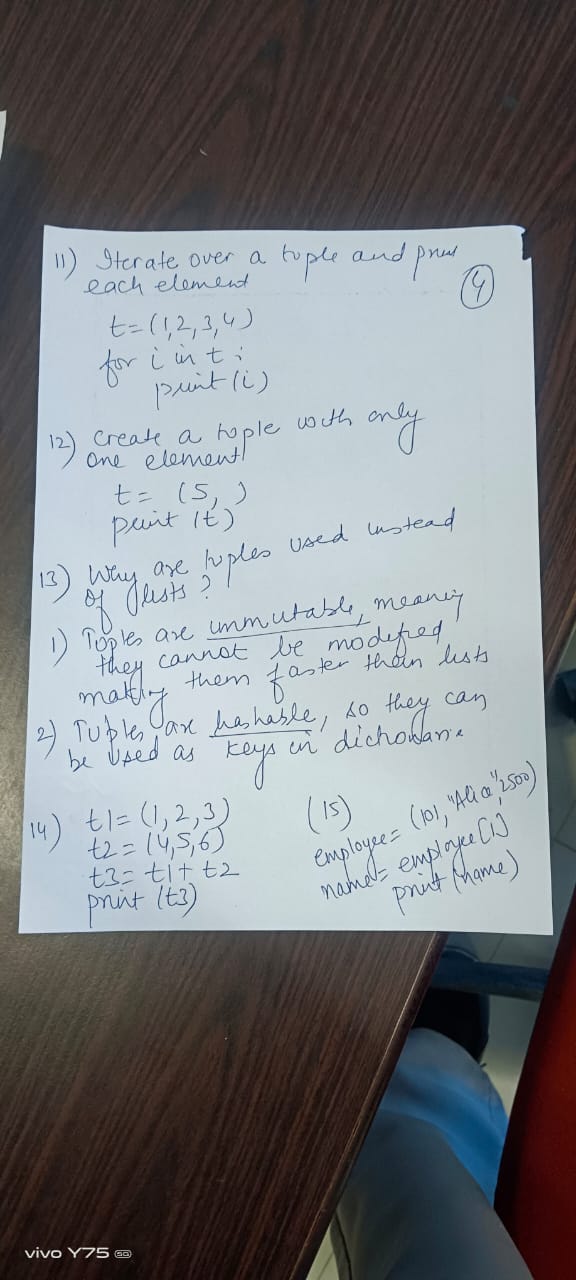 11) Iterate over a tuple and print
each element
(4)
t=(1,2,3,4)
for i in t:
print(i)
12) Create a tuple with only
One element
t= (5, )
print (t)
13) Why are tuples used instead
of lists?
1) Tuples are immutable, meaning
they cannot be modified,
making them faster than lists
2) Tuples are hashable, so they can
be used as keys in dictionarie
14) t1= (1,2,3)
t2= (4,5,6)
t3= t1+t2
print (t3)
(15)
employee= (101,"Alice",2500)
name= employee[1]
print (name)
vivo Y75 5G